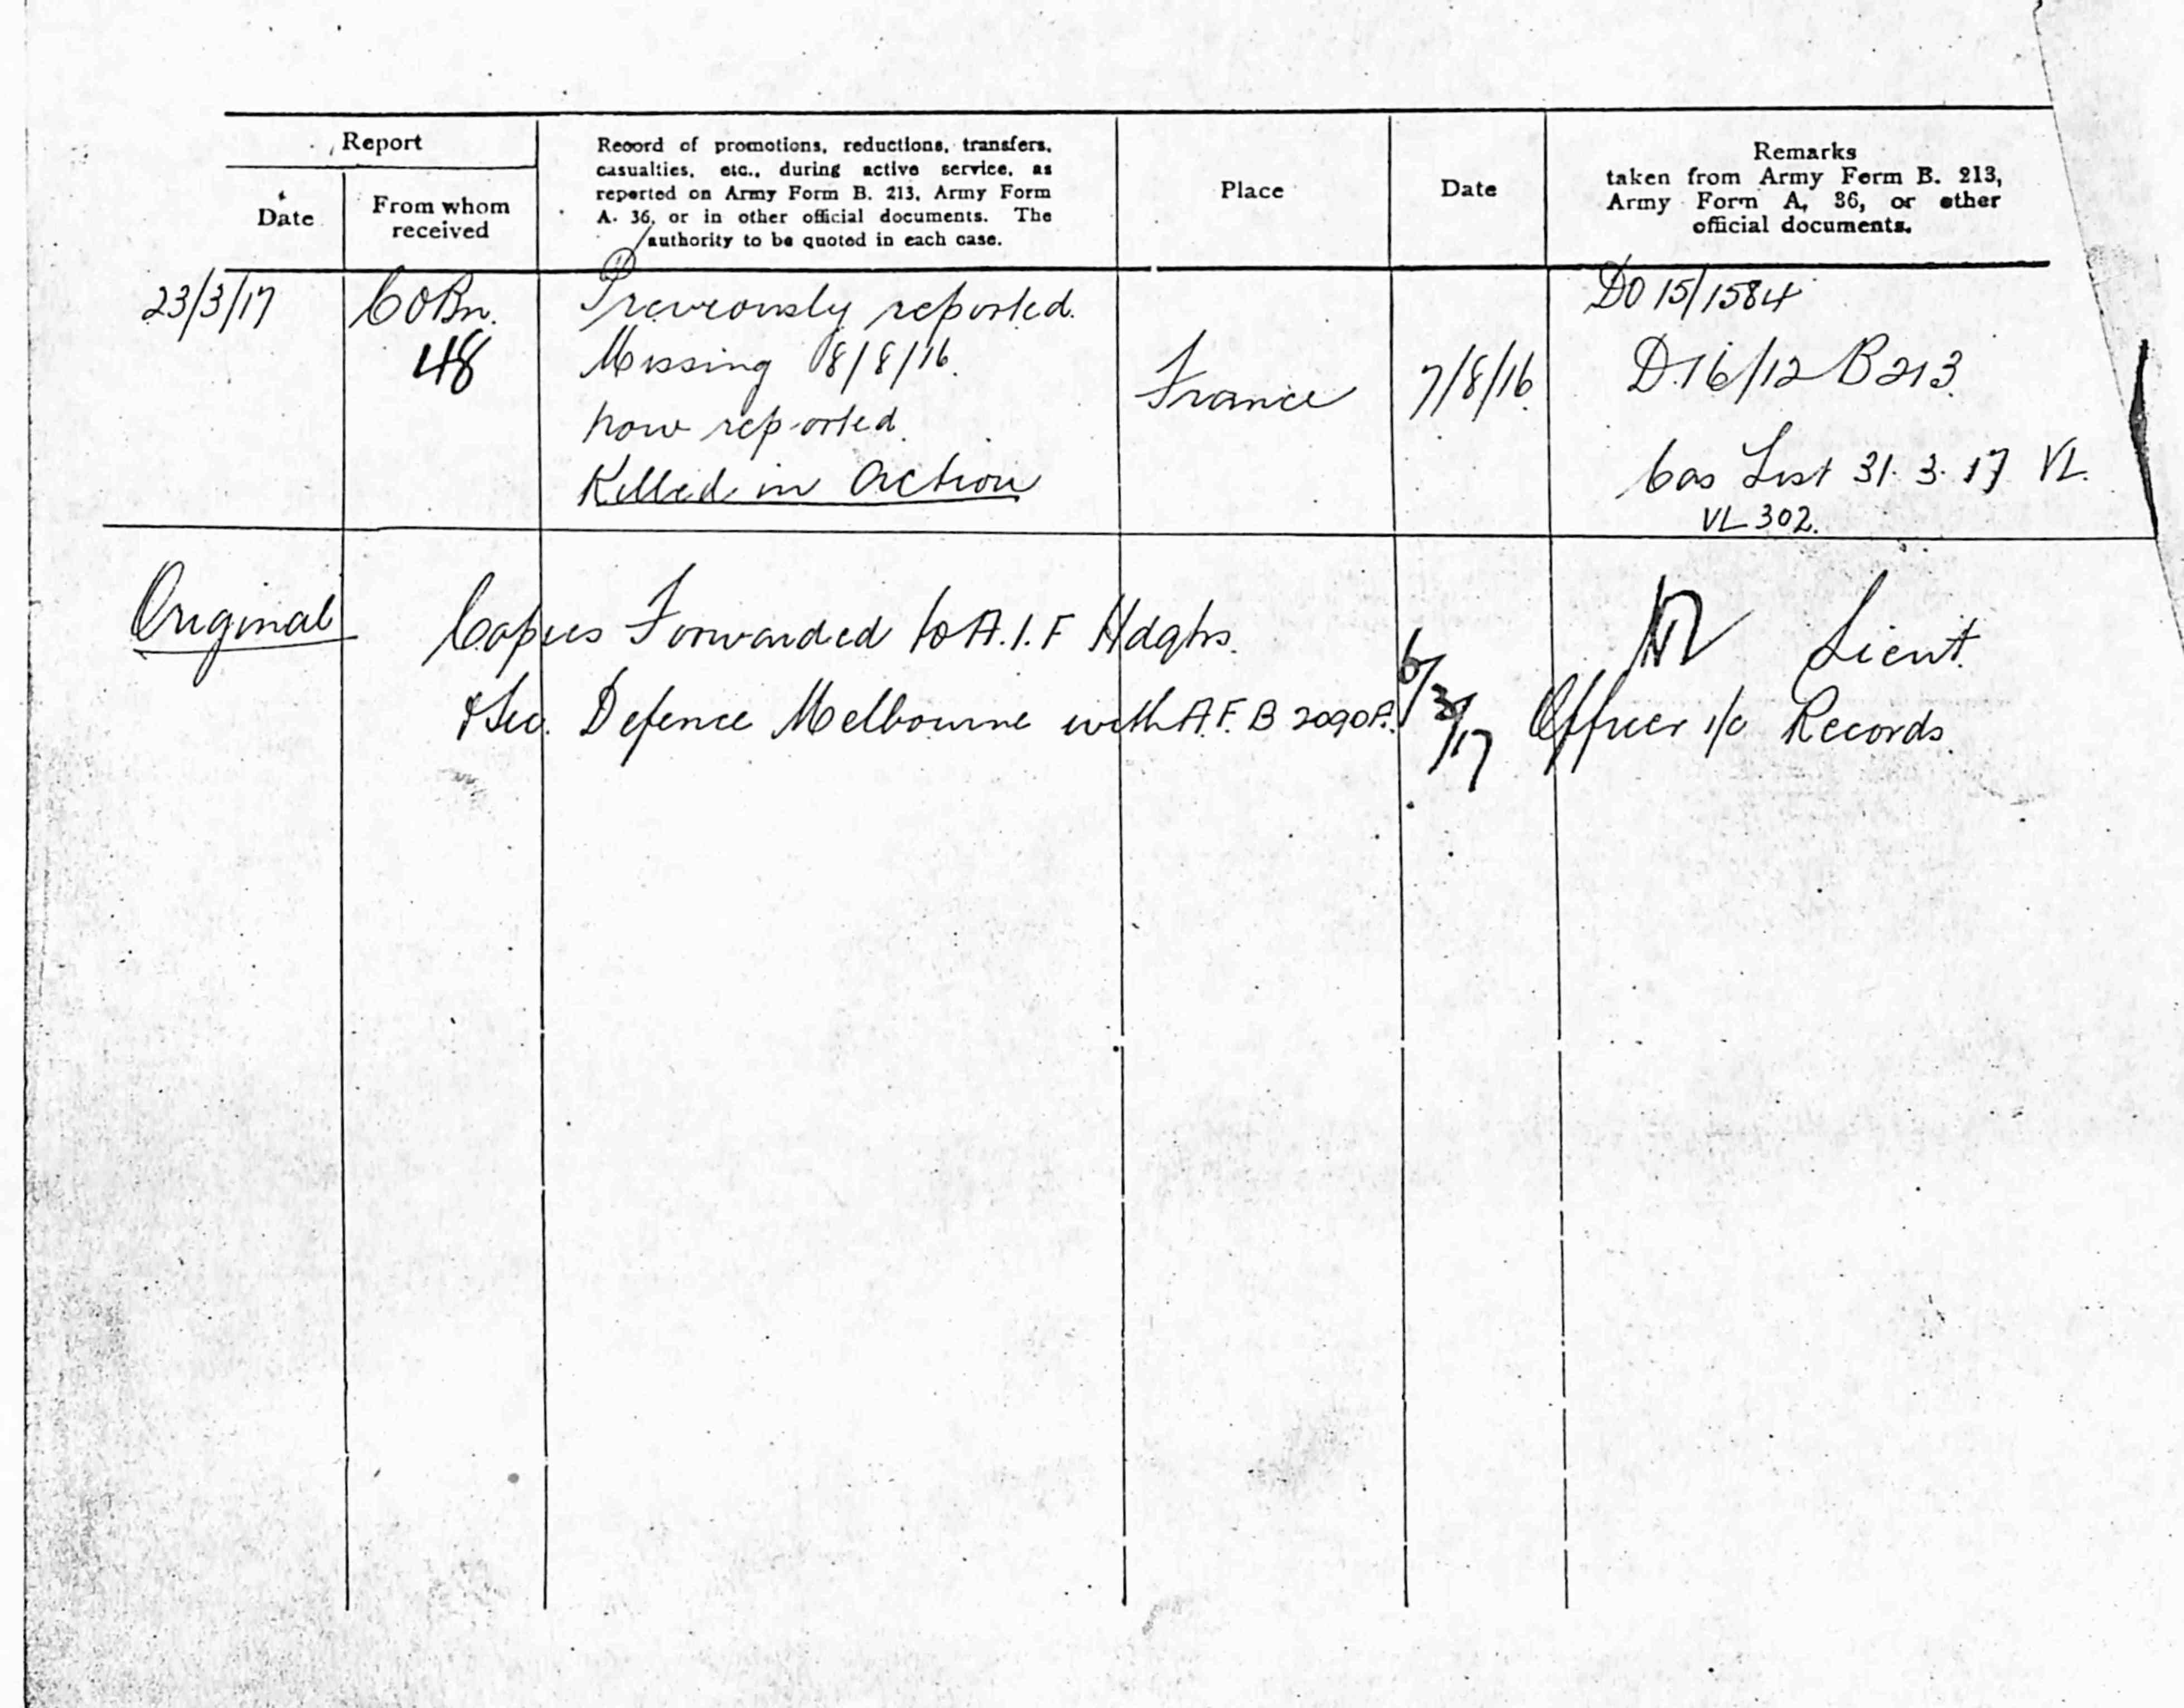 Report
Date
From whom
received
Record of promotions, reductions, transfers,
casualties, etc., during active service, as
reported on Army Form B. 213, Army Form
A. 36, or in other official documents. The
authority to be quoted in each case.
Place
Date
Remarks
taken from Army Form B. 213,
Army Form A, 36, or other
official documents.
23/3/17
CO Bn.
48
Previously reported.
Missing 8/8/16.
now reported.
Killed in Action
France
7/8/16
DO 15/1584
D.16/12 B213
Cas List 31.3.17 VL.
VL 302.
Original
Copies Forwarded to A.I.F Hdqtrs.
& Sec. Defence Melbourne with A.F. B 2090A.
Lieut.
Officer i/c Records.